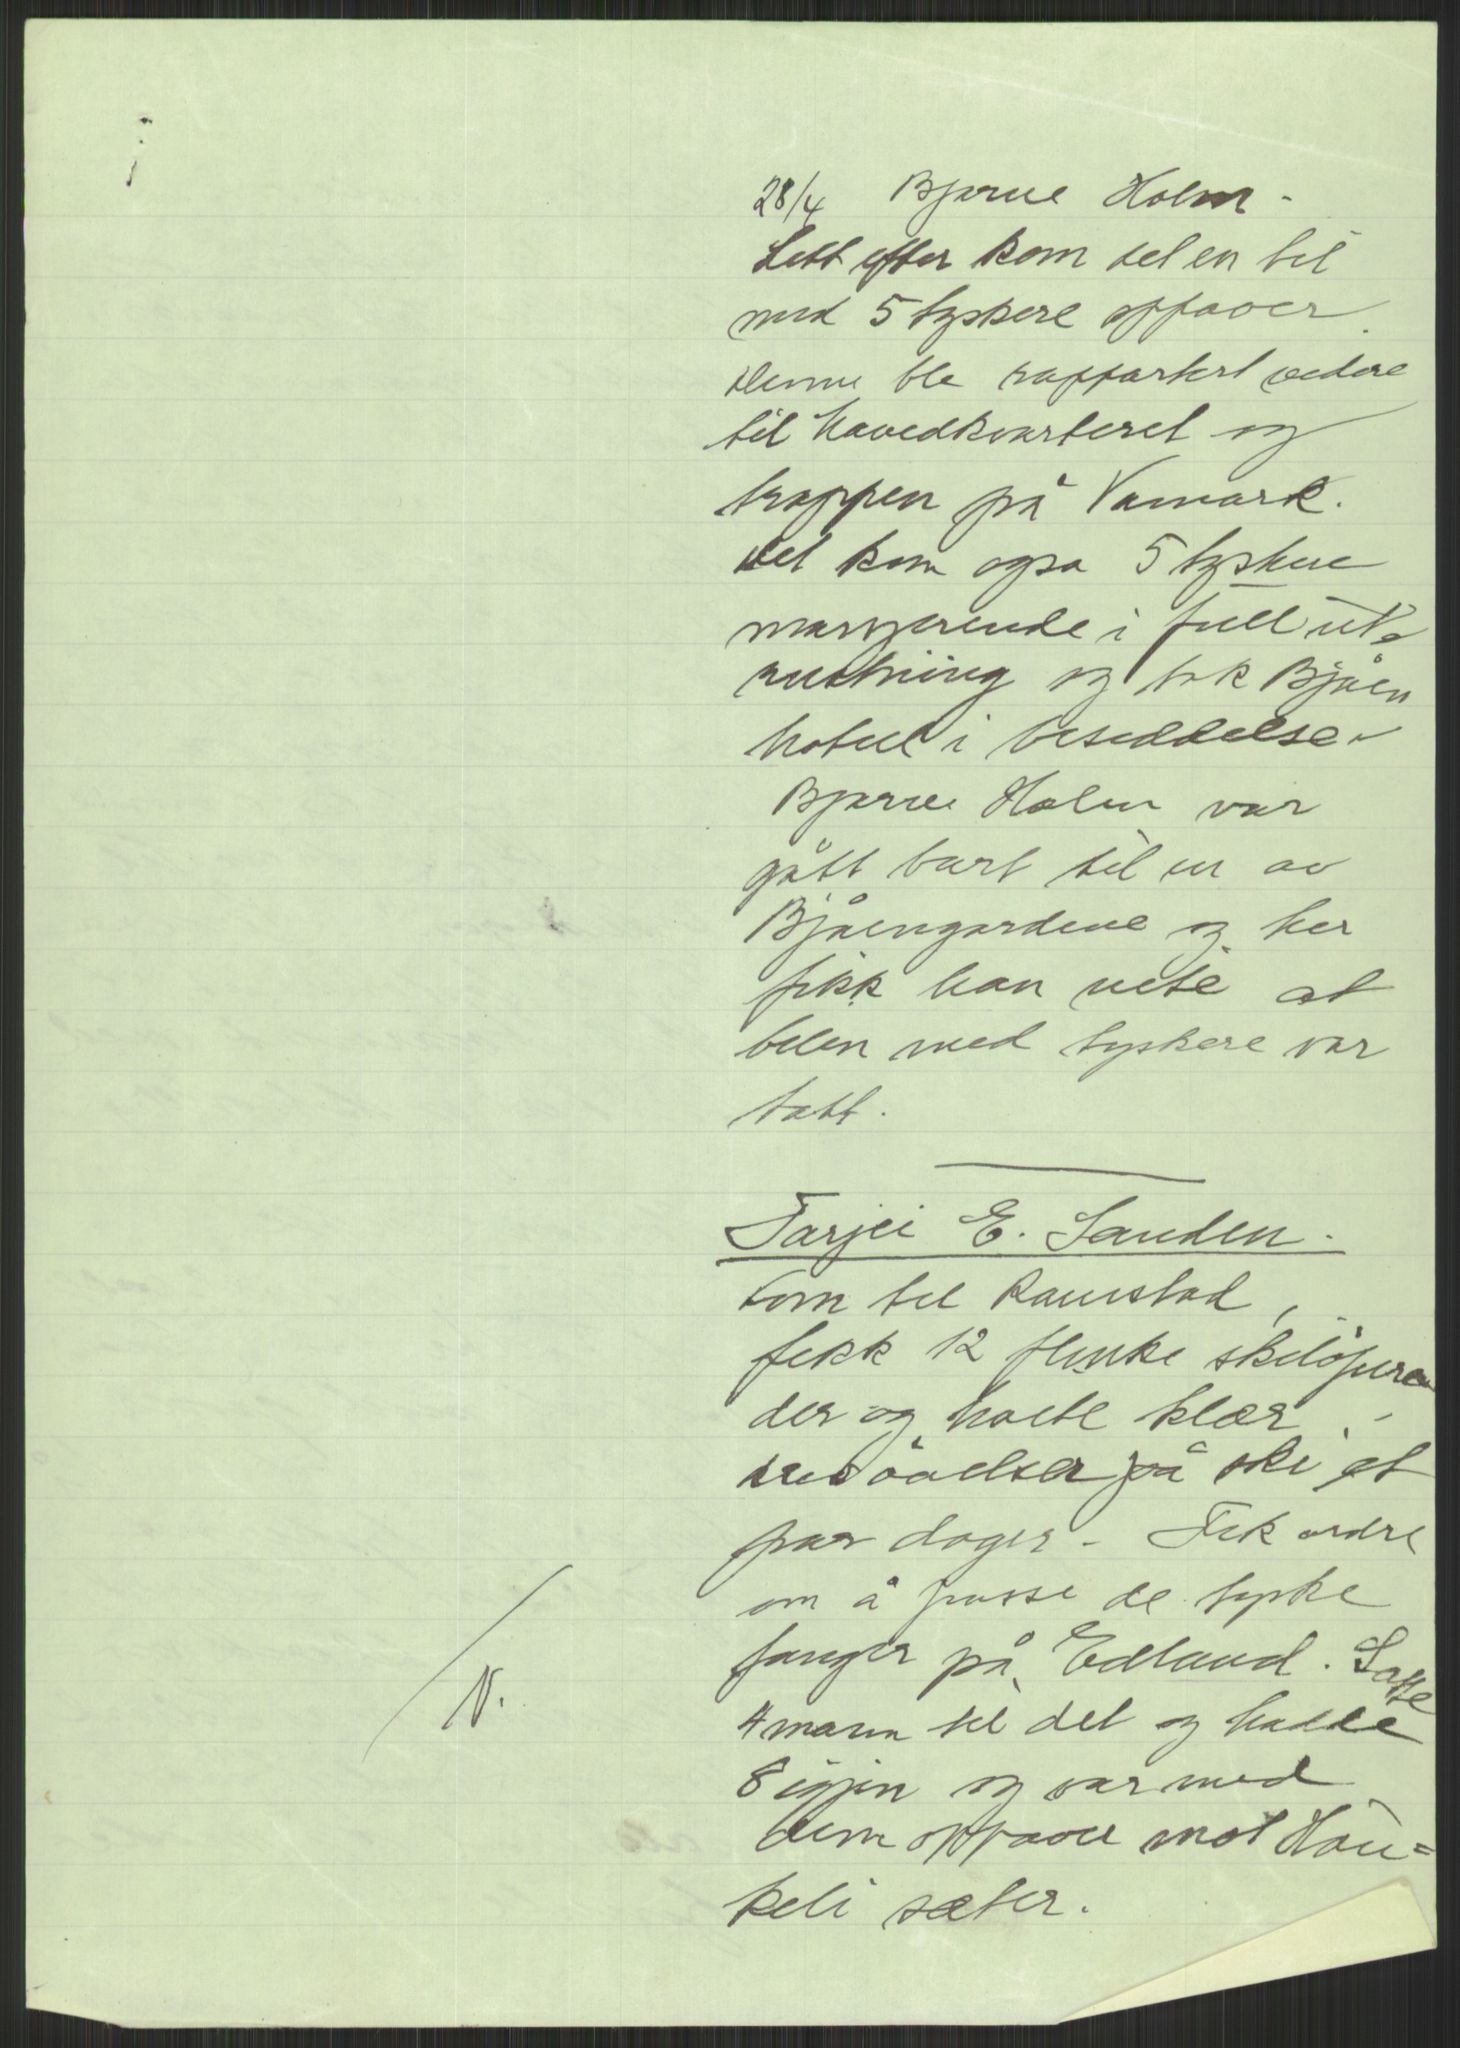 28/4 Bjarne Holm -
Lett efter kom det en bil
med 5 tyskere oppover.
Denne ble rapportert videre
til hovedkvarteret og
troppen på Vamark.
Det kom også 5 tyskere
marsjerende i full ut-
rustning og tok Bjåen
hotell i besiddelse.
Bjarne Holm var
gått bort til en av
Bjåengardene og her
fikk han vite at
bilen med tyskere var
tatt.
Tarjei E. Sanden.
Kom til Raustad,
fikk 12 flinke skiløperen
der og hvite klær. -
øvelser på ski et
par dager - Fik ordre
om å passe de tyske
fanger på Edland. Satte
4 mann til det og hadde
8 igjen og var med
dem oppover mot Hau=
keli sæter.
N.